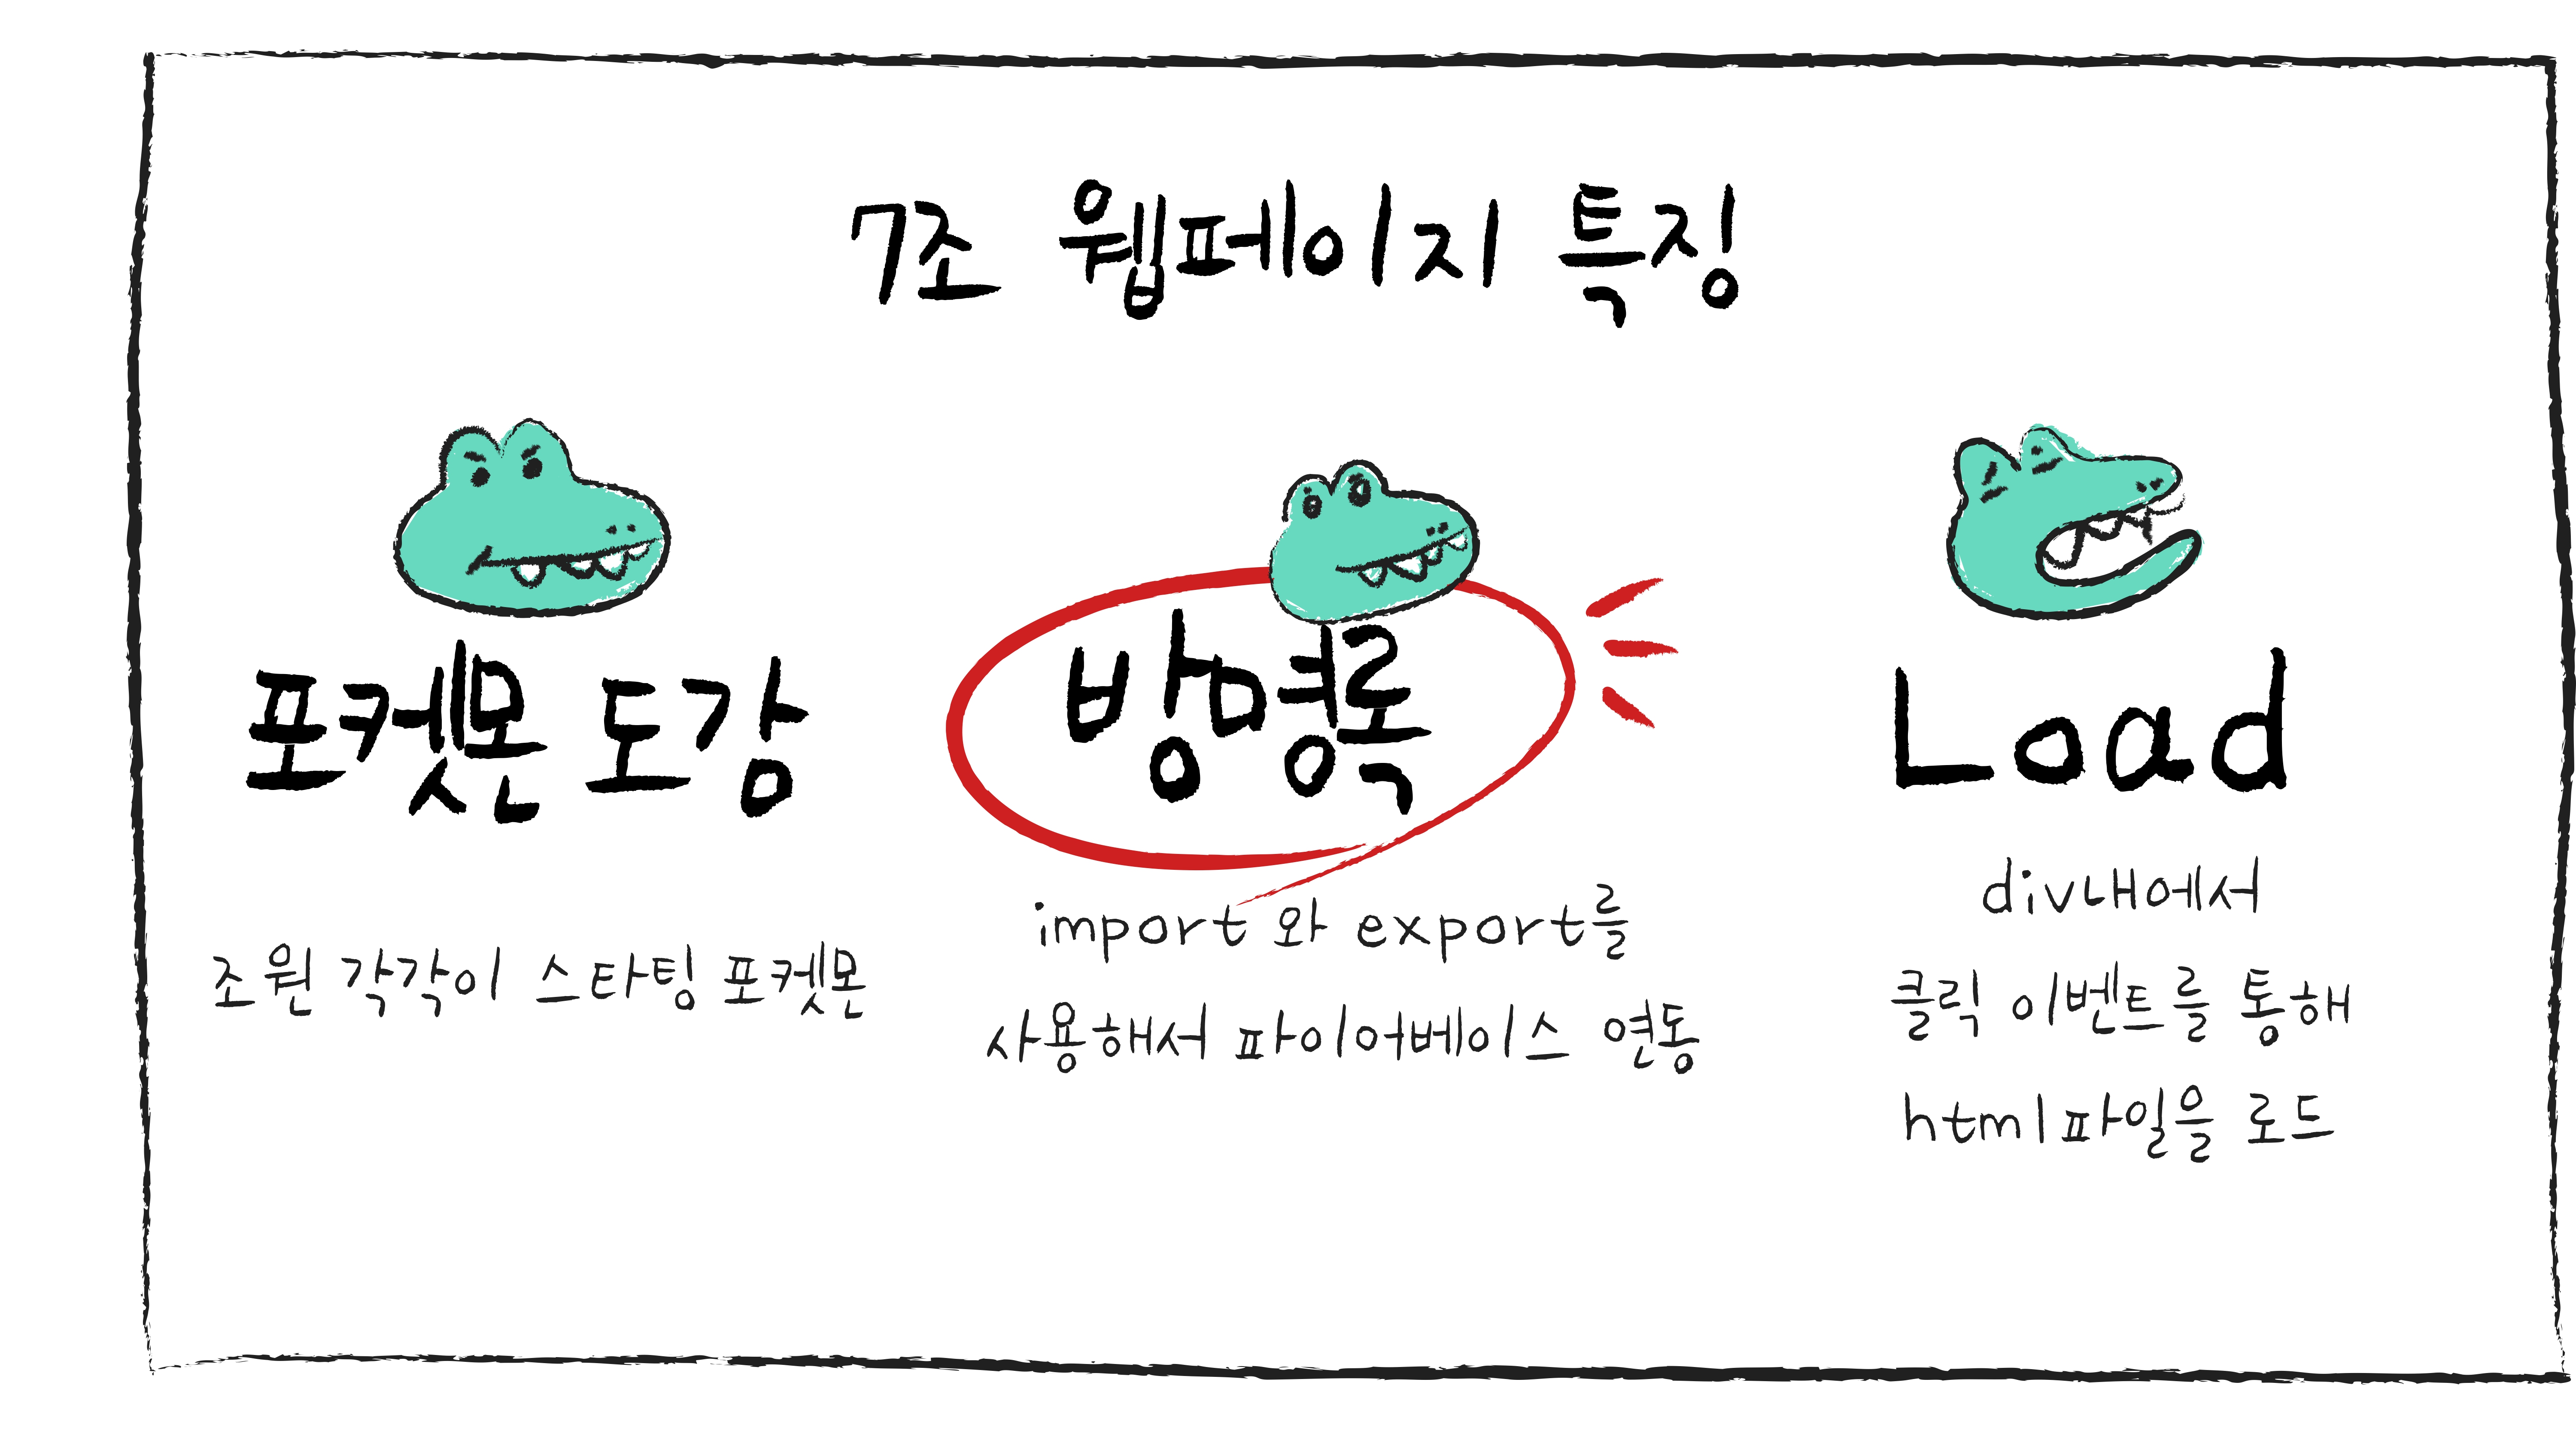 7조 웹페이지 특징
포켓몬 도감
조원 각각이 스타팅 포켓몬
방명록
import 와 export를
사용해서 파이어베이스 연동
Load
div내에서
클릭 이벤트를 통해
html파일을 로드